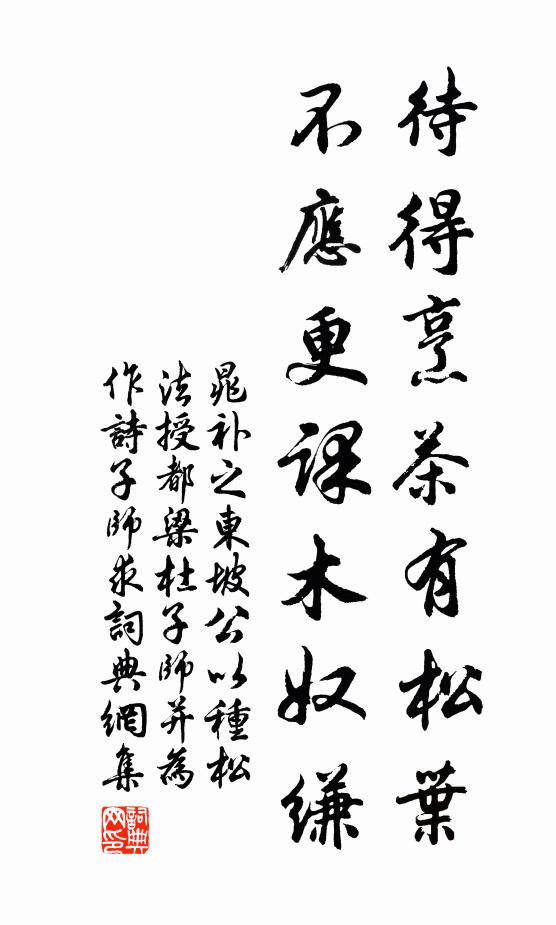 待得烹茶有松葉
不應更課木奴縑
晁补之東坡公以種松
法授都梁杜子師并為
作詩子師求詞典網集
詞典网印